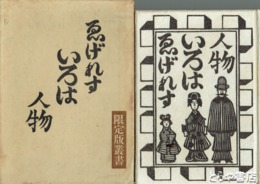 ゑげれす
いろは
人物
限定版叢書
人物
いろは
ゑげれす